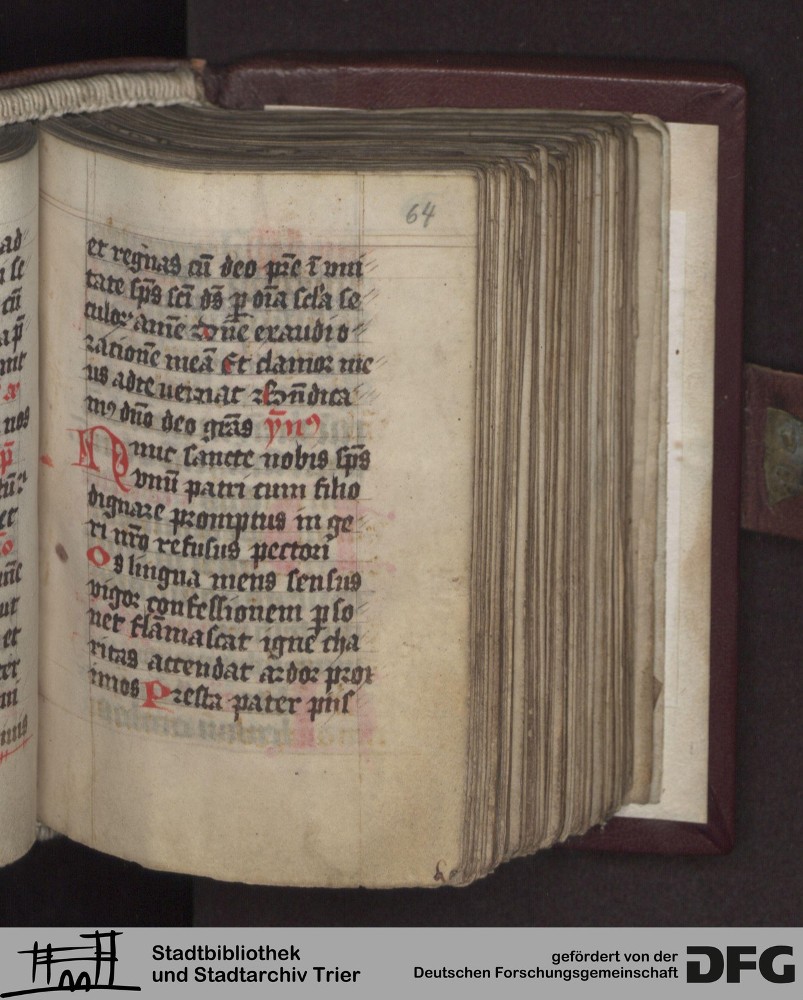 64
et regnas cū deo pr̄e ī vni
tate sp̄s sc̄i ds̄ ꝑ oīa scl̓a se
culoꝝ amē Dn̄e exaudi o
rationē meā Et clamor me
us ad te veniat Bn̄dica
mꝰ dūo deo grās ym̄nꝰ
Nunc sancte nobis sp̄s
vnū patri cum filio
dignare promptus in ge
ri nr̄o refusus pectori
Os lingua mens sensus
vigor confessionem ꝑso
net flāmascat igne cha
ritas accendat ardor prox
imos Presta pater piis
ad
cū
nos
et
et
Stadtbibliothek
und Stadtarchiv Trier
gefördert von der
Deutschen Forschungsgemeinschaft
DFG